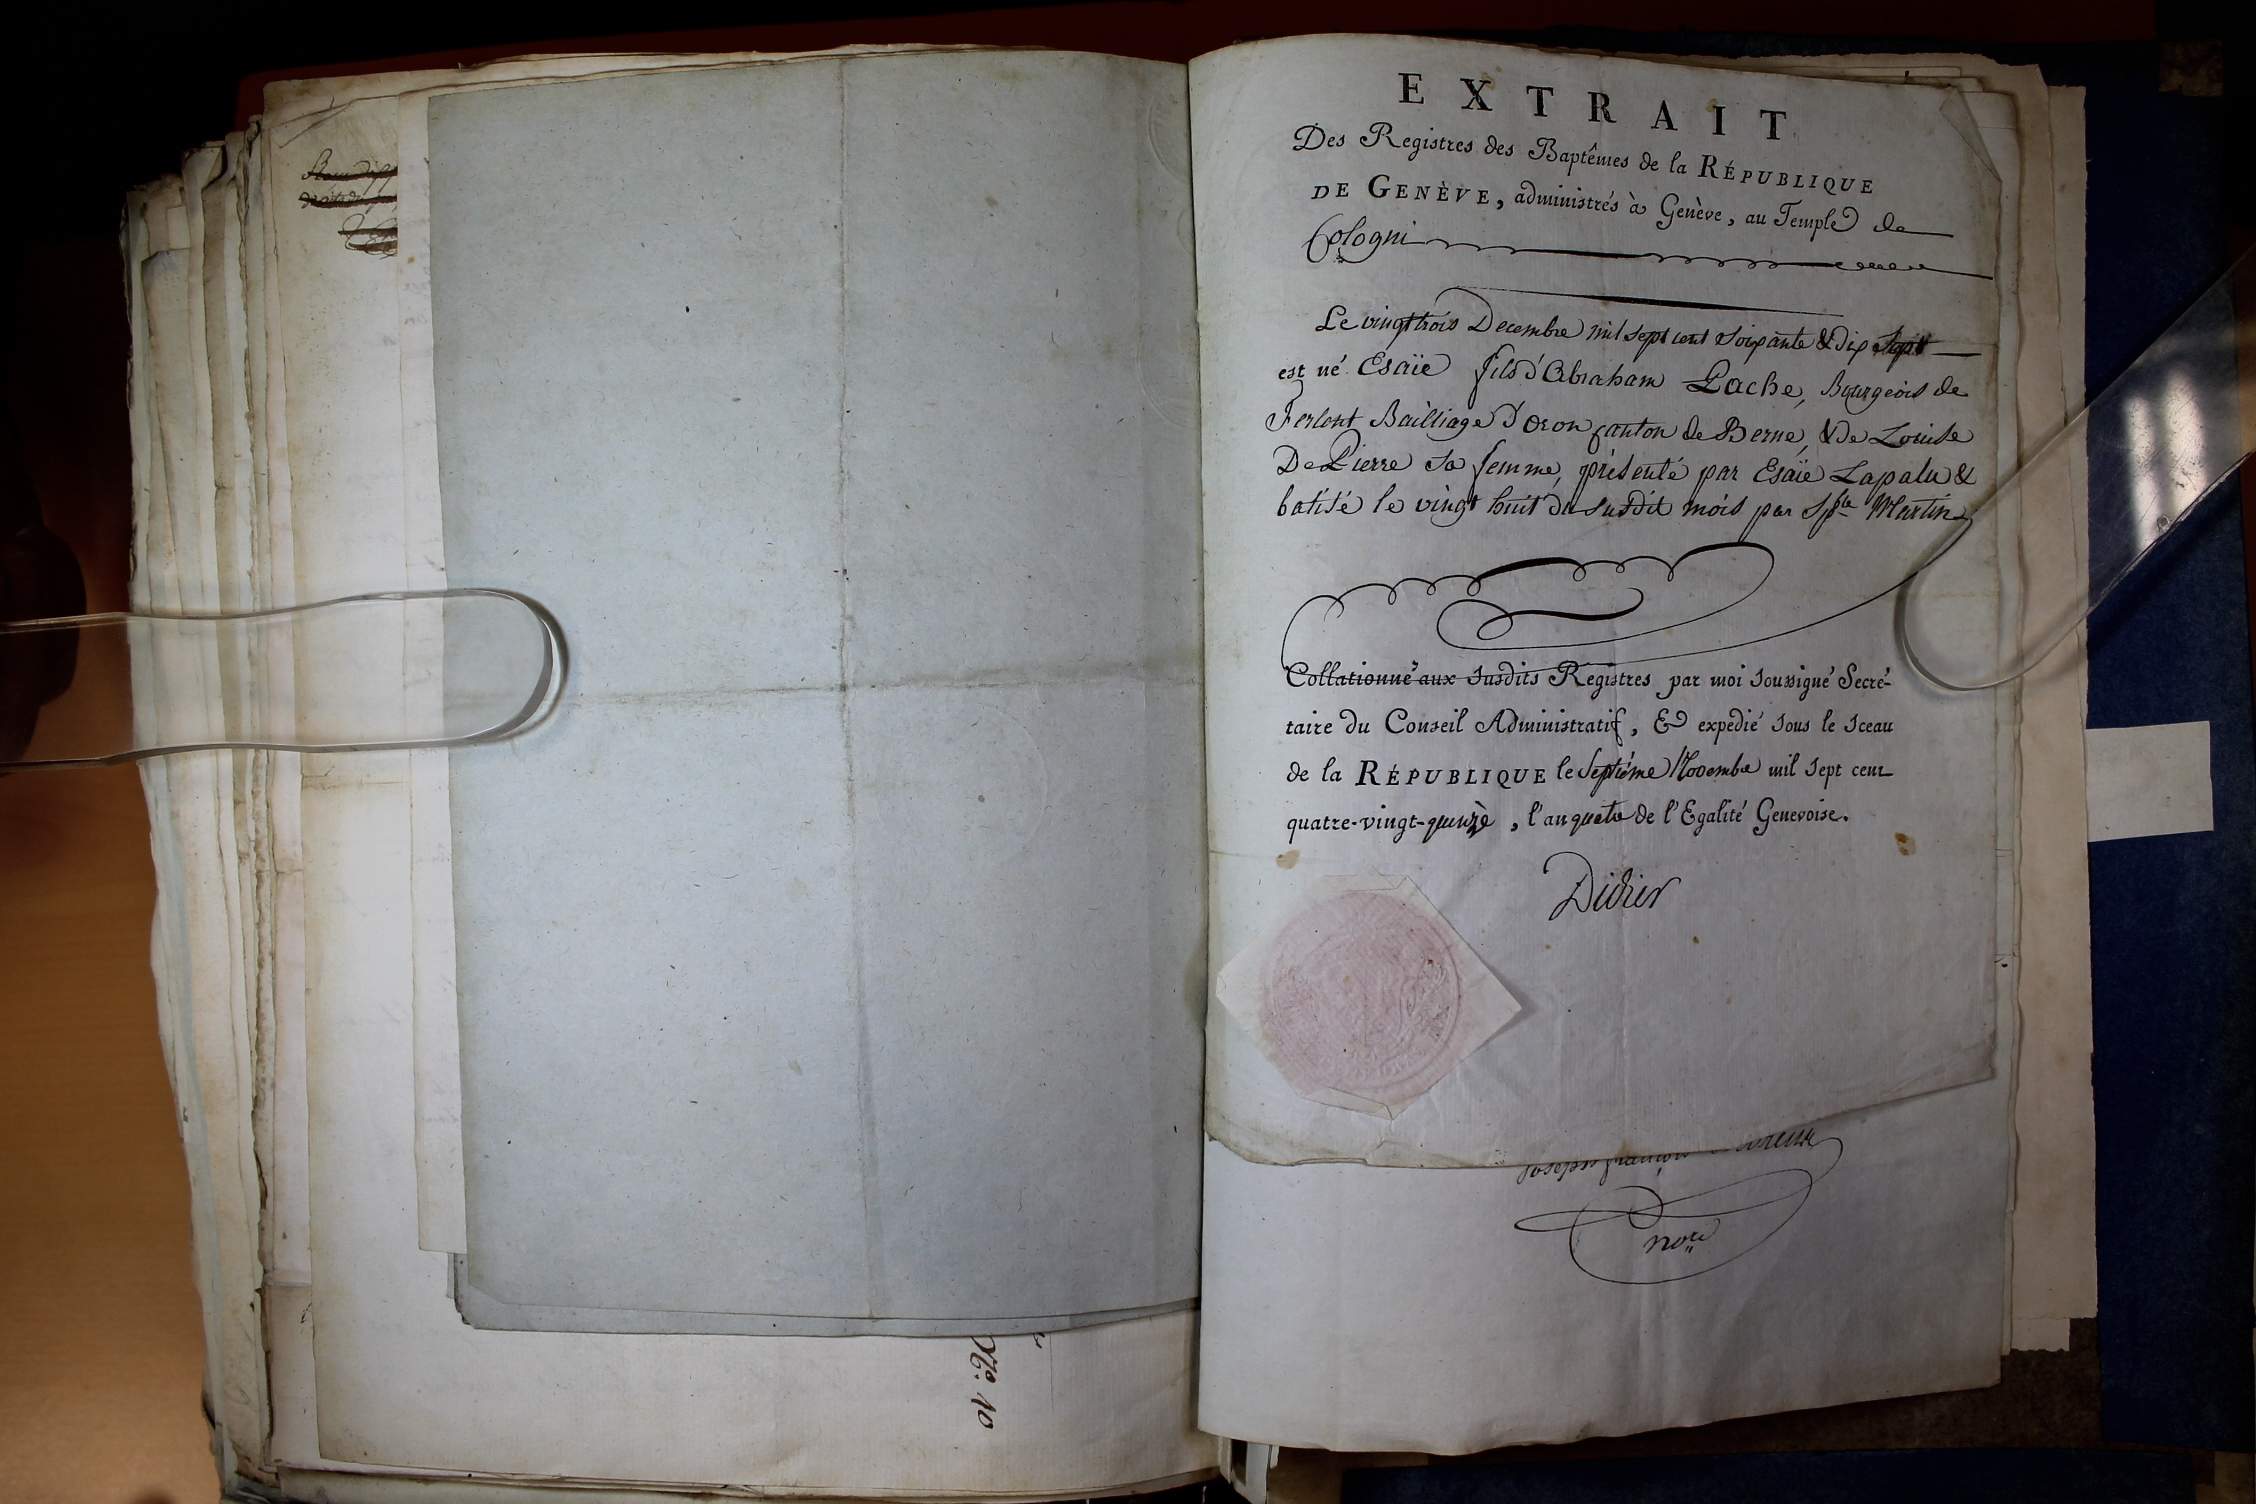 EXTRAIT
Des Registres des Baptêmes de la RÉPUBLIQUE
DE GENÈVE, administrés à Genève, au Temple de
Cologni
Le vingt trois Decembre mil sept cent soixante & dix sept
est né Esaïe fils d'Abraham Lache, Bourgeois de
Ferlent Bailliage d'Oron Canton de Berne, & de Louise
De Pierre sa femme, présenté par Esaïe Lapalu &
batisé le vingt huit du susdit mois par Sp.ble Martin
Collationné aux susdits Registres par moi soussigné Secré-
taire du Conseil Administratif, & expédié sous le sceau
de la RÉPUBLIQUE le septiéme Novembre mil sept cent
quatre-vingt-quinze, l'an quatre de l'Egalité Genevoise.
Didier
Joseph françois
no.re